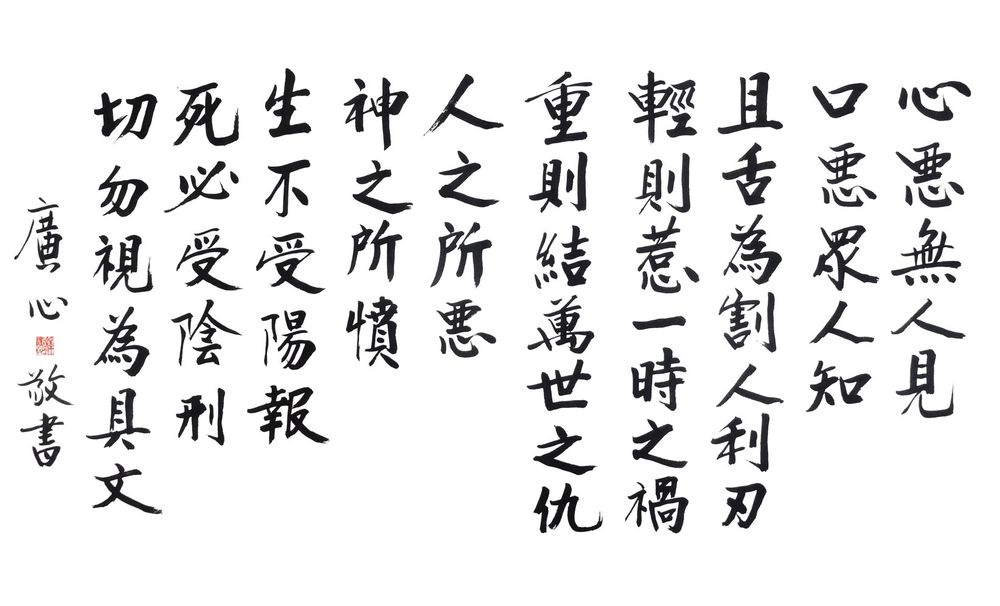 心惡無人見
口惡眾人知
且舌為割人利刃
輕則惹一時之禍
重則結萬世之仇
人之所惡
神之所憤
生不受陽報
死必受陰刑
切勿視為具文
廣心 敬書